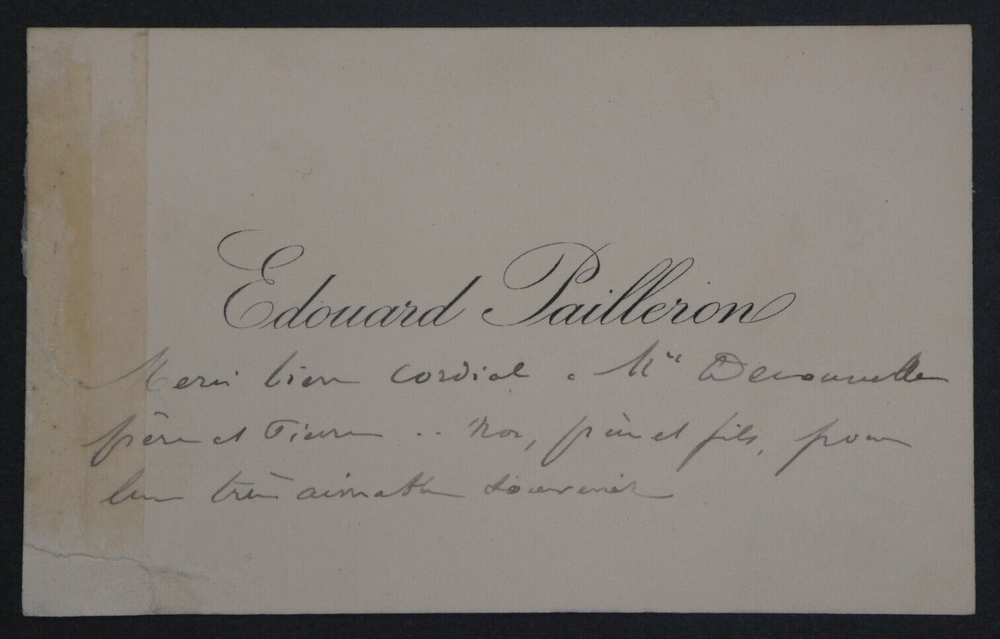 Edouard Pailleron
Merci bien cordial à Mrs
père et .. non, père et fils, pour
leur très aimable souvenir